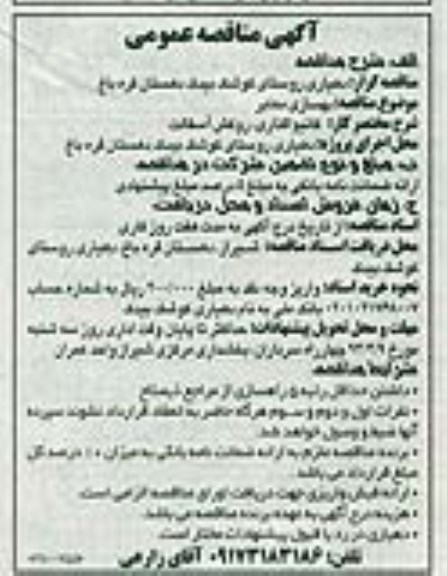 آگهی مناقصه عمومی
الف: شرح مناقصه
مناقصه گزار: دهیاری روستای کوشک بیدک دهستان قره باغ
موضوع مناقصه: بهسازی معابر
شرح مختصر کار: روکش آسفالت
محل اجرای پروژه: دهیاری روستای کوشک بیدک دهستان قره باغ
ب: مبلغ و نوع تضمین شرکت در مناقصه
ارائه ضمانت نامه بانکی به مبلغ درصد مبلغ پیشنهادی
ج: زمان فروش اسناد و محل دریافت:
اسناد مناقصه: از تاریخ درج آگهی به مدت هفت روز کاری
محل دریافت اسناد مناقصه: شیراز دهستان قره باغ دهیاری روستای
کوشک بیدک
نحوه خرید اسناد: واریز وجه نقد به مبلغ ریال به شماره حساب
بانک ملی به نام دهیاری کوشک بیدک
مهلت و محل تحویل پیشنهادات: حداکثر تا پایان وقت اداری روز سه شنبه
مورخ چهارراه سرداران بخشداری مرکزی شیراز واحد عمران
شرایط مناقصه
• داشتن حداقل رتبه ۵ راهسازی از مراجع ذیصلاح
• نفرات اول و دوم و سوم هرگاه حاضر به انعقاد قرارداد نشوند سپرده
آنها ضبط و وصول خواهد شد.
• برنده مناقصه ملزم به ارائه ضمانت نامه بانکی به میزان ۱۰ درصد کل
مبلغ قرارداد می باشد.
• ارائه فیش واریزی جهت دریافت اوراق مناقصه الزامی است.
• هزینه درج آگهی به عهده برنده مناقصه می باشد.
• دهیاری در رد یا قبول پیشنهادات مختار است.
تلفن: ۰۹۱۷۳۱۸۳۱۸۶ آقای زارعی